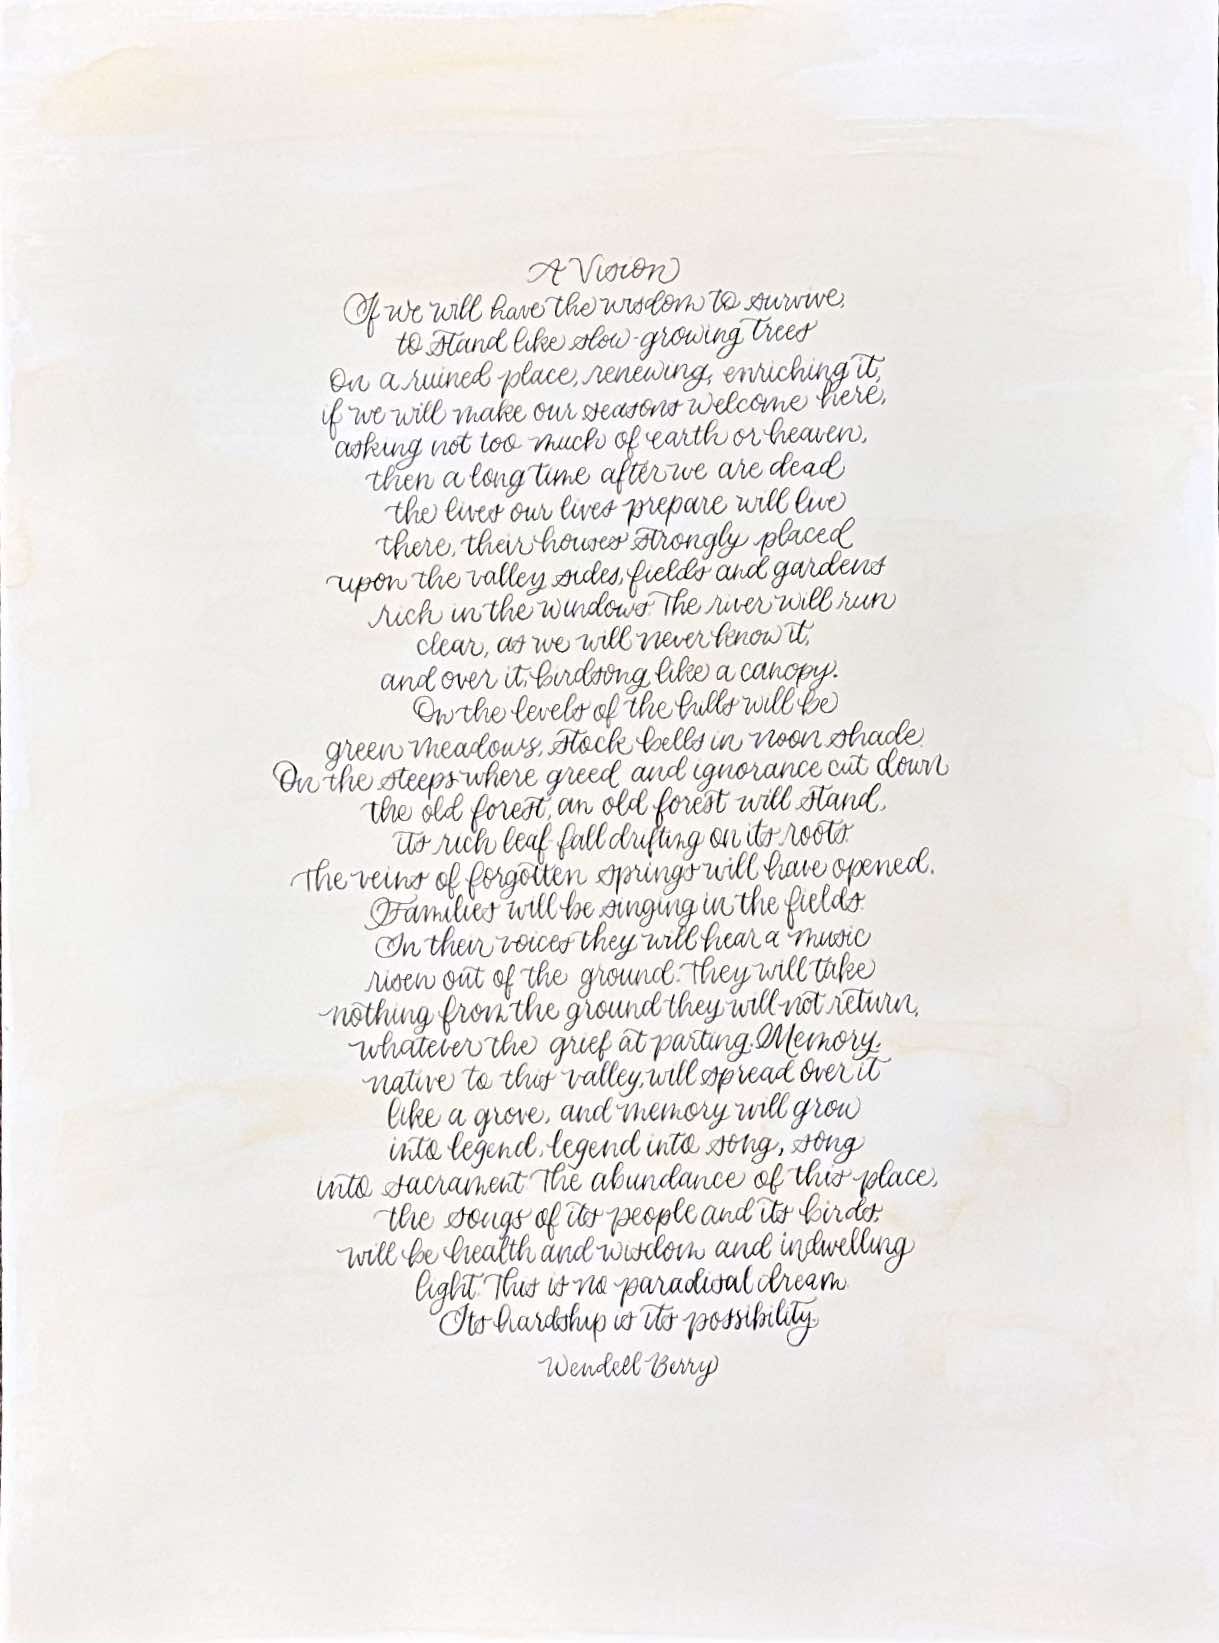 A Vision
If we will have the wisdom to survive,
to stand like slow-growing trees
on a ruined place, renewing, enriching it,
if we will make our seasons welcome here,
asking not too much of earth or heaven,
then a long time after we are dead
the lives our lives prepare will live
there, their houses strongly placed
upon the valley sides, fields and gardens
rich in the windows. The river will run
clear, as we will never know it,
and over it, birdsong like a canopy.
On the levels of the hills will be
green meadows, stock bells in noon shade.
On the steeps where greed and ignorance cut down
the old forest, an old forest will stand,
its rich leaf-fall drifting on its roots.
The veins of forgotten springs will have opened.
Families will be singing in the fields.
In their voices they will hear a music
risen out of the ground. They will take
nothing from the ground they will not return,
whatever the grief at parting. Memory,
native to this valley, will spread over it
like a grove, and memory will grow
into legend, legend into song, song
into sacrament. The abundance of this place,
the songs of its people and its birds,
will be health and wisdom and indwelling
light. This is no paradisal dream.
Its hardship is its possibility.
Wendell Berry